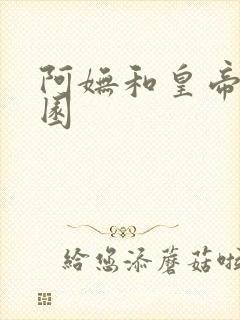 阿嫵和皇帝
園
給您添蘑菇啦